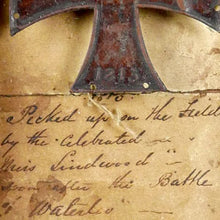 Picked up on the Field
by the Celebrated
Miss Lindwood
soon after the Battle
of Waterloo